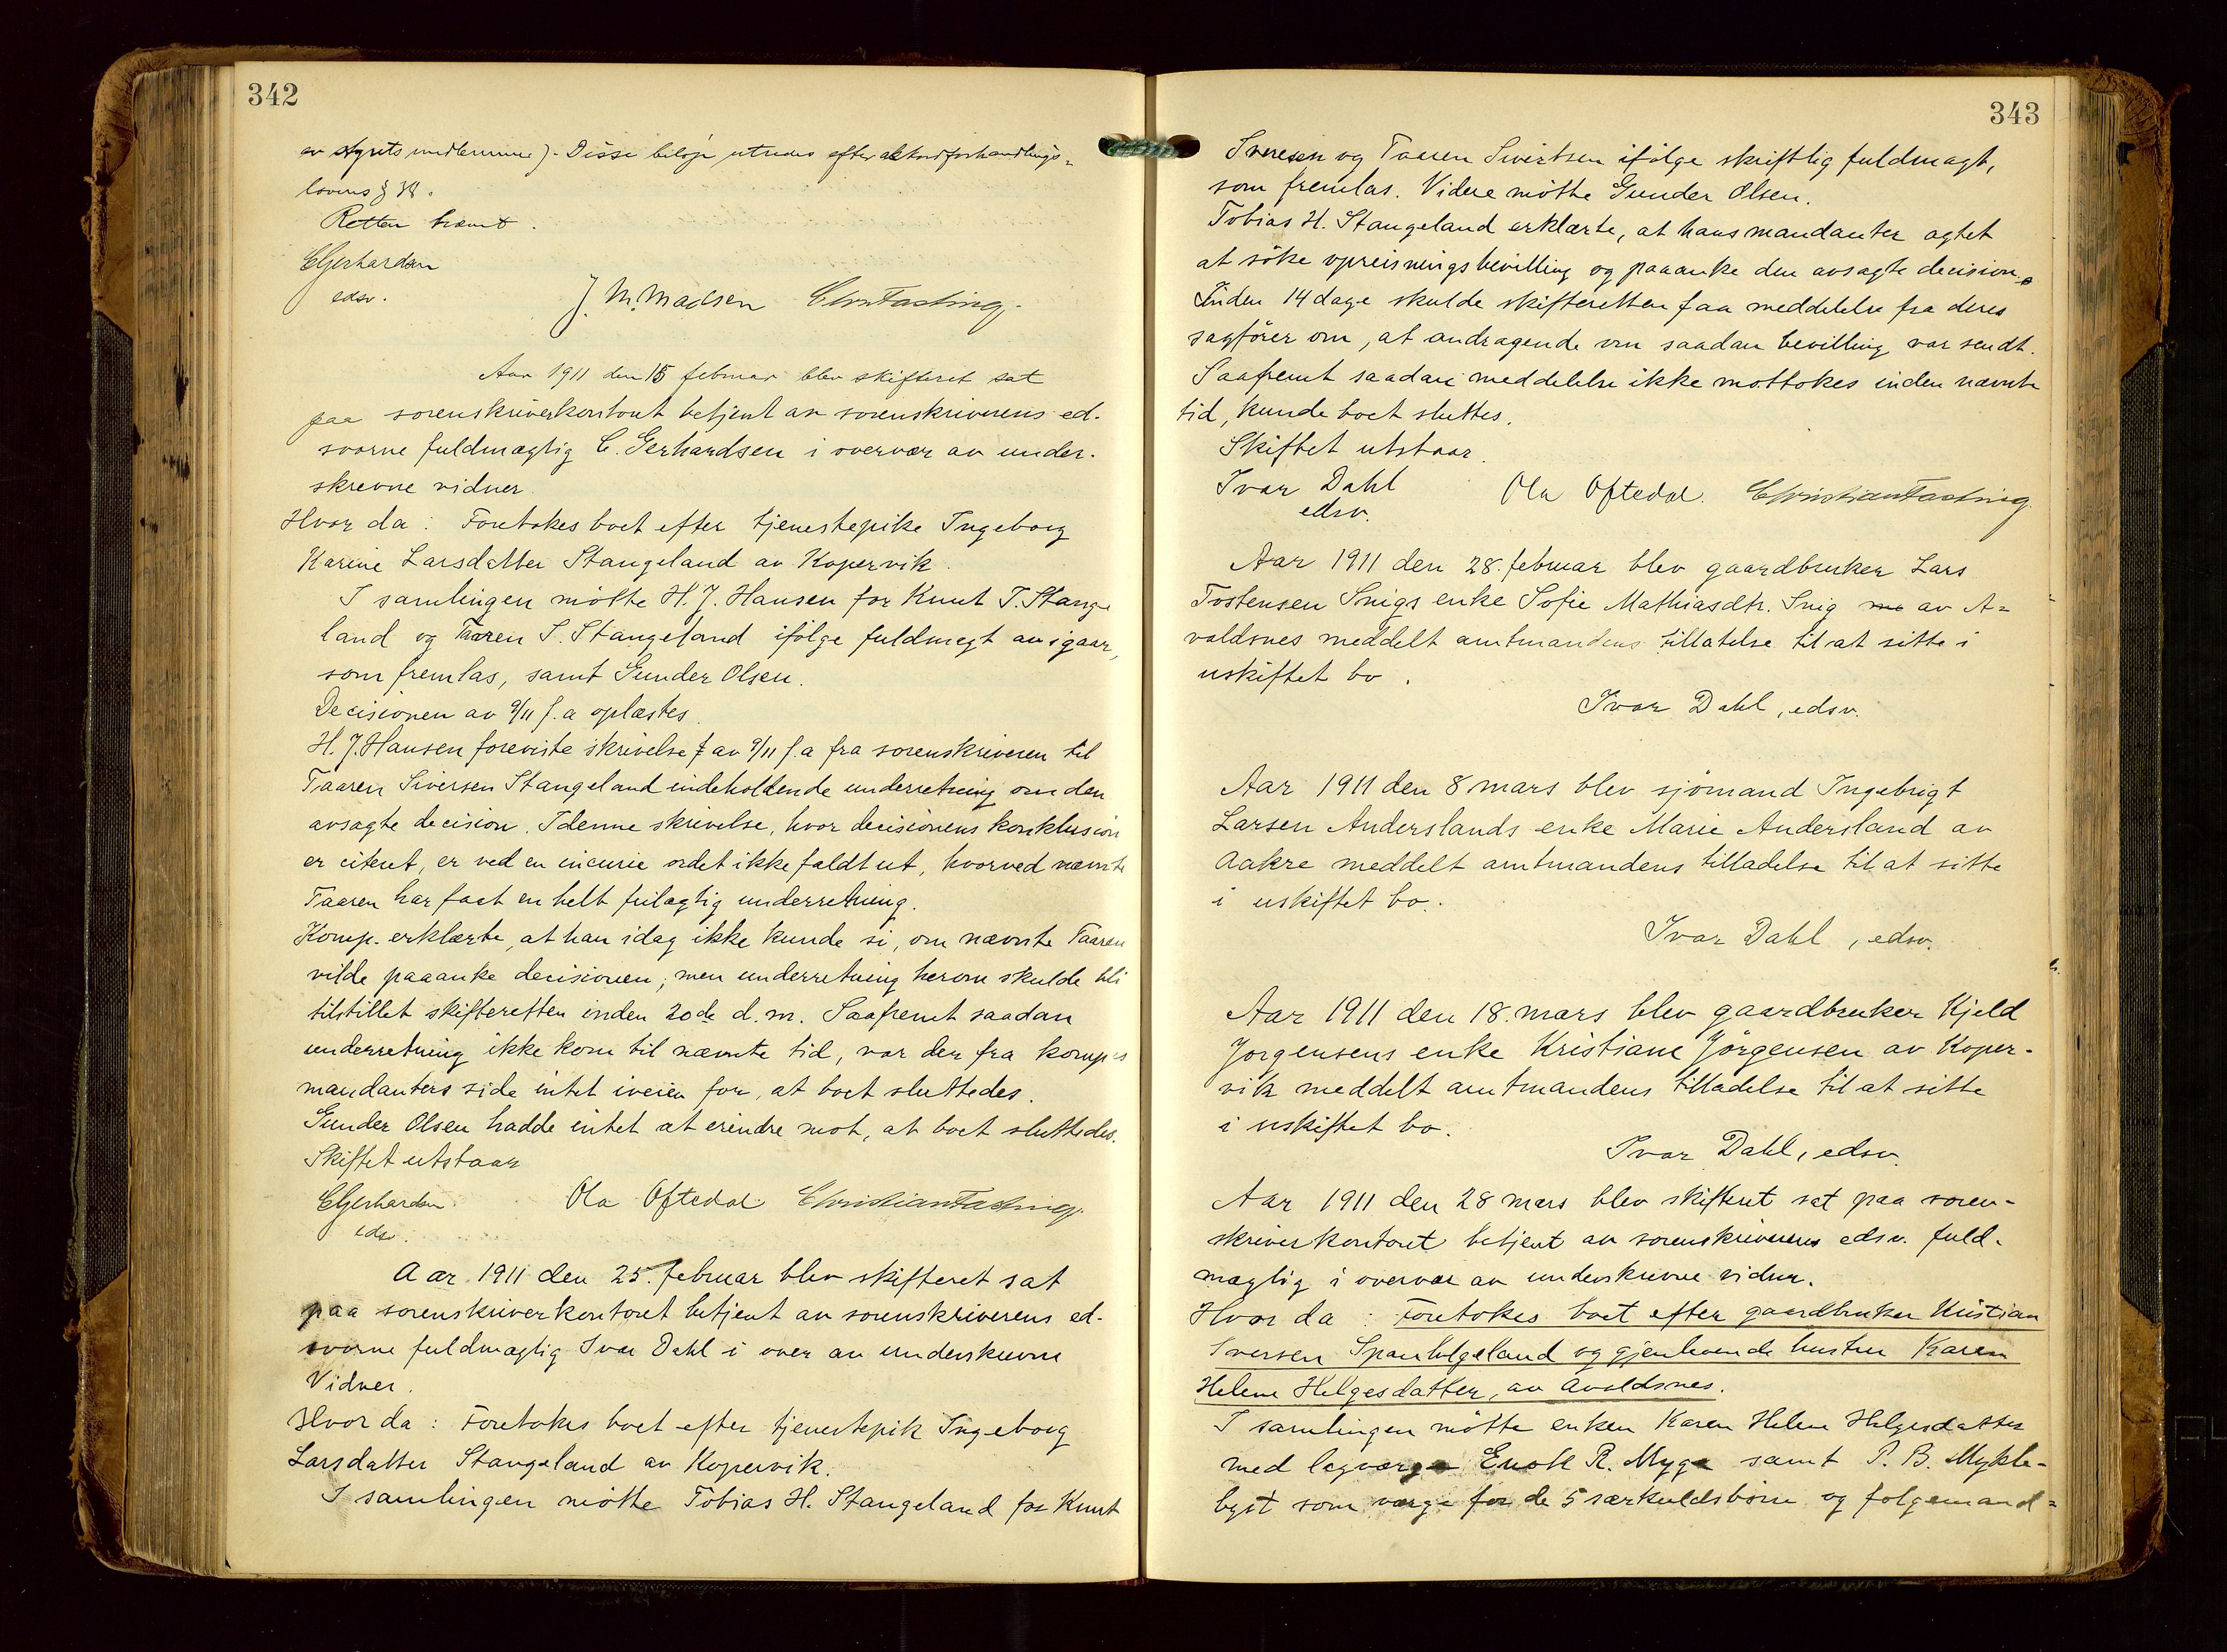 342
av styrets medlemmer). Disse beløp utredes efter akkordforhandlings-
lovens §
Retten hævet.
CGerhardsen
edsv.
J. M. Madsen Chr Fasting.
Aar 1911 den 15 februar blev skifteret sat
paa sorenskriverkontoret betjent av sorenskriverens ed-
svorne fuldmægtig C. Gerhardsen i overvær av under-
skrevne vidner.
Hvor da: Foretokes boet efter tjenestepike Ingeborg
Karine Larsdatter Stangeland av Kopervik.
I samlingen møtte H. J. Hansen for Knut T. Stange
land og Taaren S. Stangeland ifølge fuldmagt av igaar,
som fremlas, samt Gunder Olsen.
Decisionen av 9/11 f.a oplæstes.
H. J. Hansen foreviste skrivelse av 9/11 f.a fra sorenskriveren til
Taaren Siversen Stangeland indeholdende underretning om den
avsagte decision. I denne skrivelse, hvor decisionens konklusion
er citeret, er ved en incurie ordet ikke faldt ut, hvorved nævnte
Taaren har faat en helt feilagtig underretning.
Komp. erklærte, at han idag ikke kunde si, om nævnte Taaren
vilde paaanke decisionen; men underretning herom skulde bli
tilstillet skifteretten inden 20de d.m. Saafremt saadan
underretning ikke kom til nævnte tid, var der fra komp's
mandanters side intet iveien for, at boet sluttedes.
Gunder Olsen hadde intet at erindre mot, at boet sluttedes.
Skiftet utstaar
CGerhardsen Ola Oftedal. Christian Fasting.
edsv.
Aar 1911 den 25. februar blev skifteret sat
paa sorenskriverkontoret betjent av sorenskriverens ed-
svorne fuldmægtig Ivar Dahl i over av underskrevne
Vidner.
Hvor da: Foretokes boet efter tjenestepik Ingeborg
Larsdatter Stangeland av Kopervik.
I samlingen møtte Tobias H. Stangeland for Knut
343
Sveresen og Taaren Sivertsen ifølge skriftlig fuldmagt,
som fremlas. Videre møtte Gunder Olsen.
Tobias H. Stangeland erklærte, at hans mandanter agtet
at søke opreisningsbevilling og paaanke den avsagte decision.
Inden 14 dage skulde skifteretten faa meddelelse fra deres
sagfører om, at andragende om saadan bevilling var sendt.
Saafremt saadan meddelelse ikke mottokes inden nævnte
tid, kunde boet sluttes.
Skiftet utstaar.
Ivar Dahl Ola Oftedal. Christian Fasting.
edsv.
Aar 1911 den 28. februar blev gaardbruker Lars
Tostensen Snigs enke Sofie Mathiasdtr. Snig av A-
valdsnes meddelt amtmandens tillatelse til at sitte i
uskiftet bo.
Ivar Dahl, edsv.
Aar 1911 den 8 mars blev sjømand Ingebrigt
Larsen Anderslands enke Marie Andersland av
Aakre meddelt amtmandens tilladelse til at sitte
i uskiftet bo.
Ivar Dahl, edsv.
Aar 1911 den 18. mars blev gaardbruker Kjeld
Jørgensens enke Kristiane Jørgensen av Koper-
vik meddelt amtmandens tilladelse til at sitte
i uskiftet bo.
Ivar Dahl, edsv.
Aar 1911 den 28 mars blev skifteret sat paa soren-
skriverkontoret betjent av sorenskriverens edsv. fuld-
mægtig i overvær av underskrevne vidner.
Hvor da: Foretokes boet efter gaardbruker Kristian
Iversen Spanhelgeland og gjenlevende hustru Karen
Helene Helgesdatter, av Avaldsnes.
I samlingen møtte enken Karen Helene Helgesdatter
med lagværge Enok R. Myge samt P. B. Mykle-
byst som værge for de 5 særkuldsbörn og følgemand-